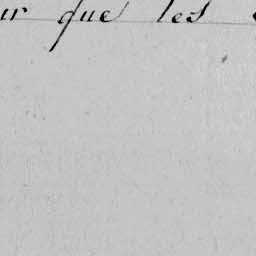 ur que les